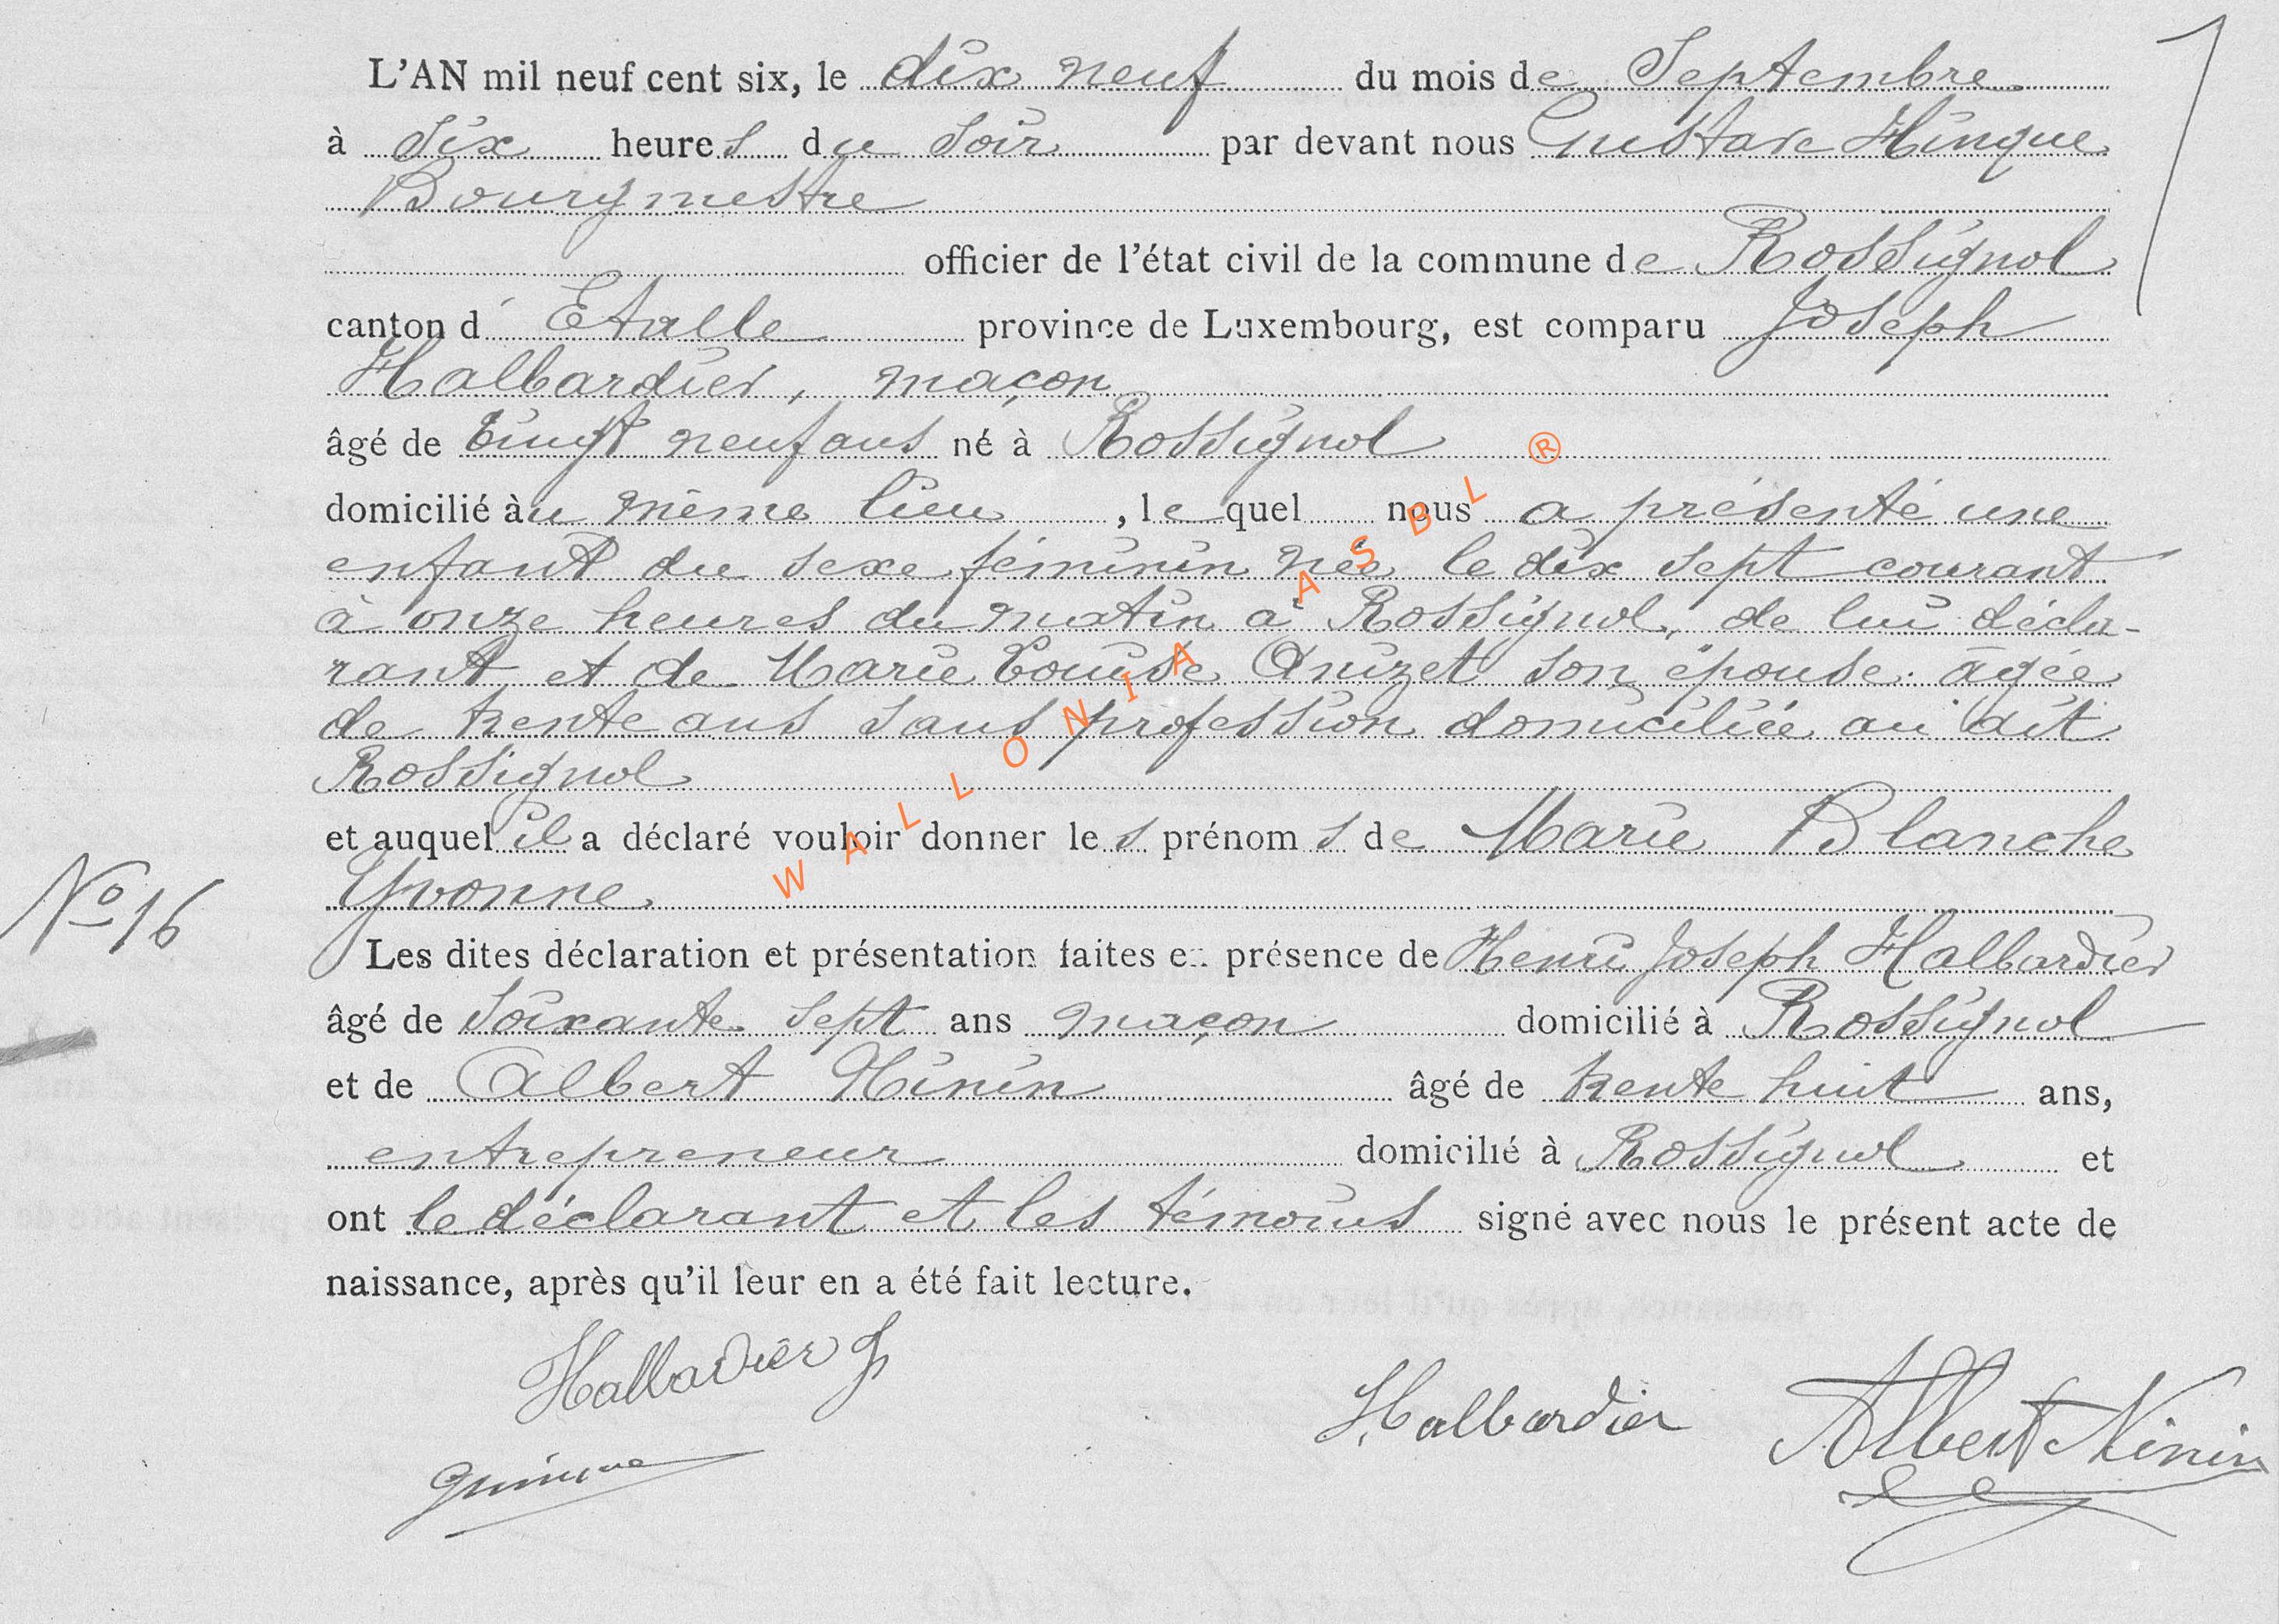 L'AN mil neuf cent six, le dix neuf du mois de Septembre
à six heures du soir par devant nous Gustave Hinque
Bourgmestre
officier de l'état civil de la commune de Rossignol
canton d'Etalle province de Luxembourg, est comparu Joseph
Halbardier, maçon
âgé de vingt neuf ans né à Rossignol
domicilié àu même lieu, lequel nous a présenté une
enfant du sexe féminin née le dix sept courant
à onze heures du matin à Rossignol, de lui décla-
rant et de Marie Louise Anizet son épouse âgée
de trente ans sans profession domiciliée au dit
Rossignol
et auquel il a déclaré vouloir donner les prénoms de Marie Blanche
Yvonne
No 16
Les dites déclaration et présentation faites en présence de Henri Joseph Halbardier
âgé de soixante sept ans maçon domicilié à Rossignol
et de Albert Ninin âgé de trente huit ans,
entrepreneur domicilié à Rossignol et
ont le déclarant et les témoins signé avec nous le présent acte de
naissance, après qu'il leur en a été fait lecture.
Halbardier J
Halbardier Albert Ninin
WALLONIA ASBL ®